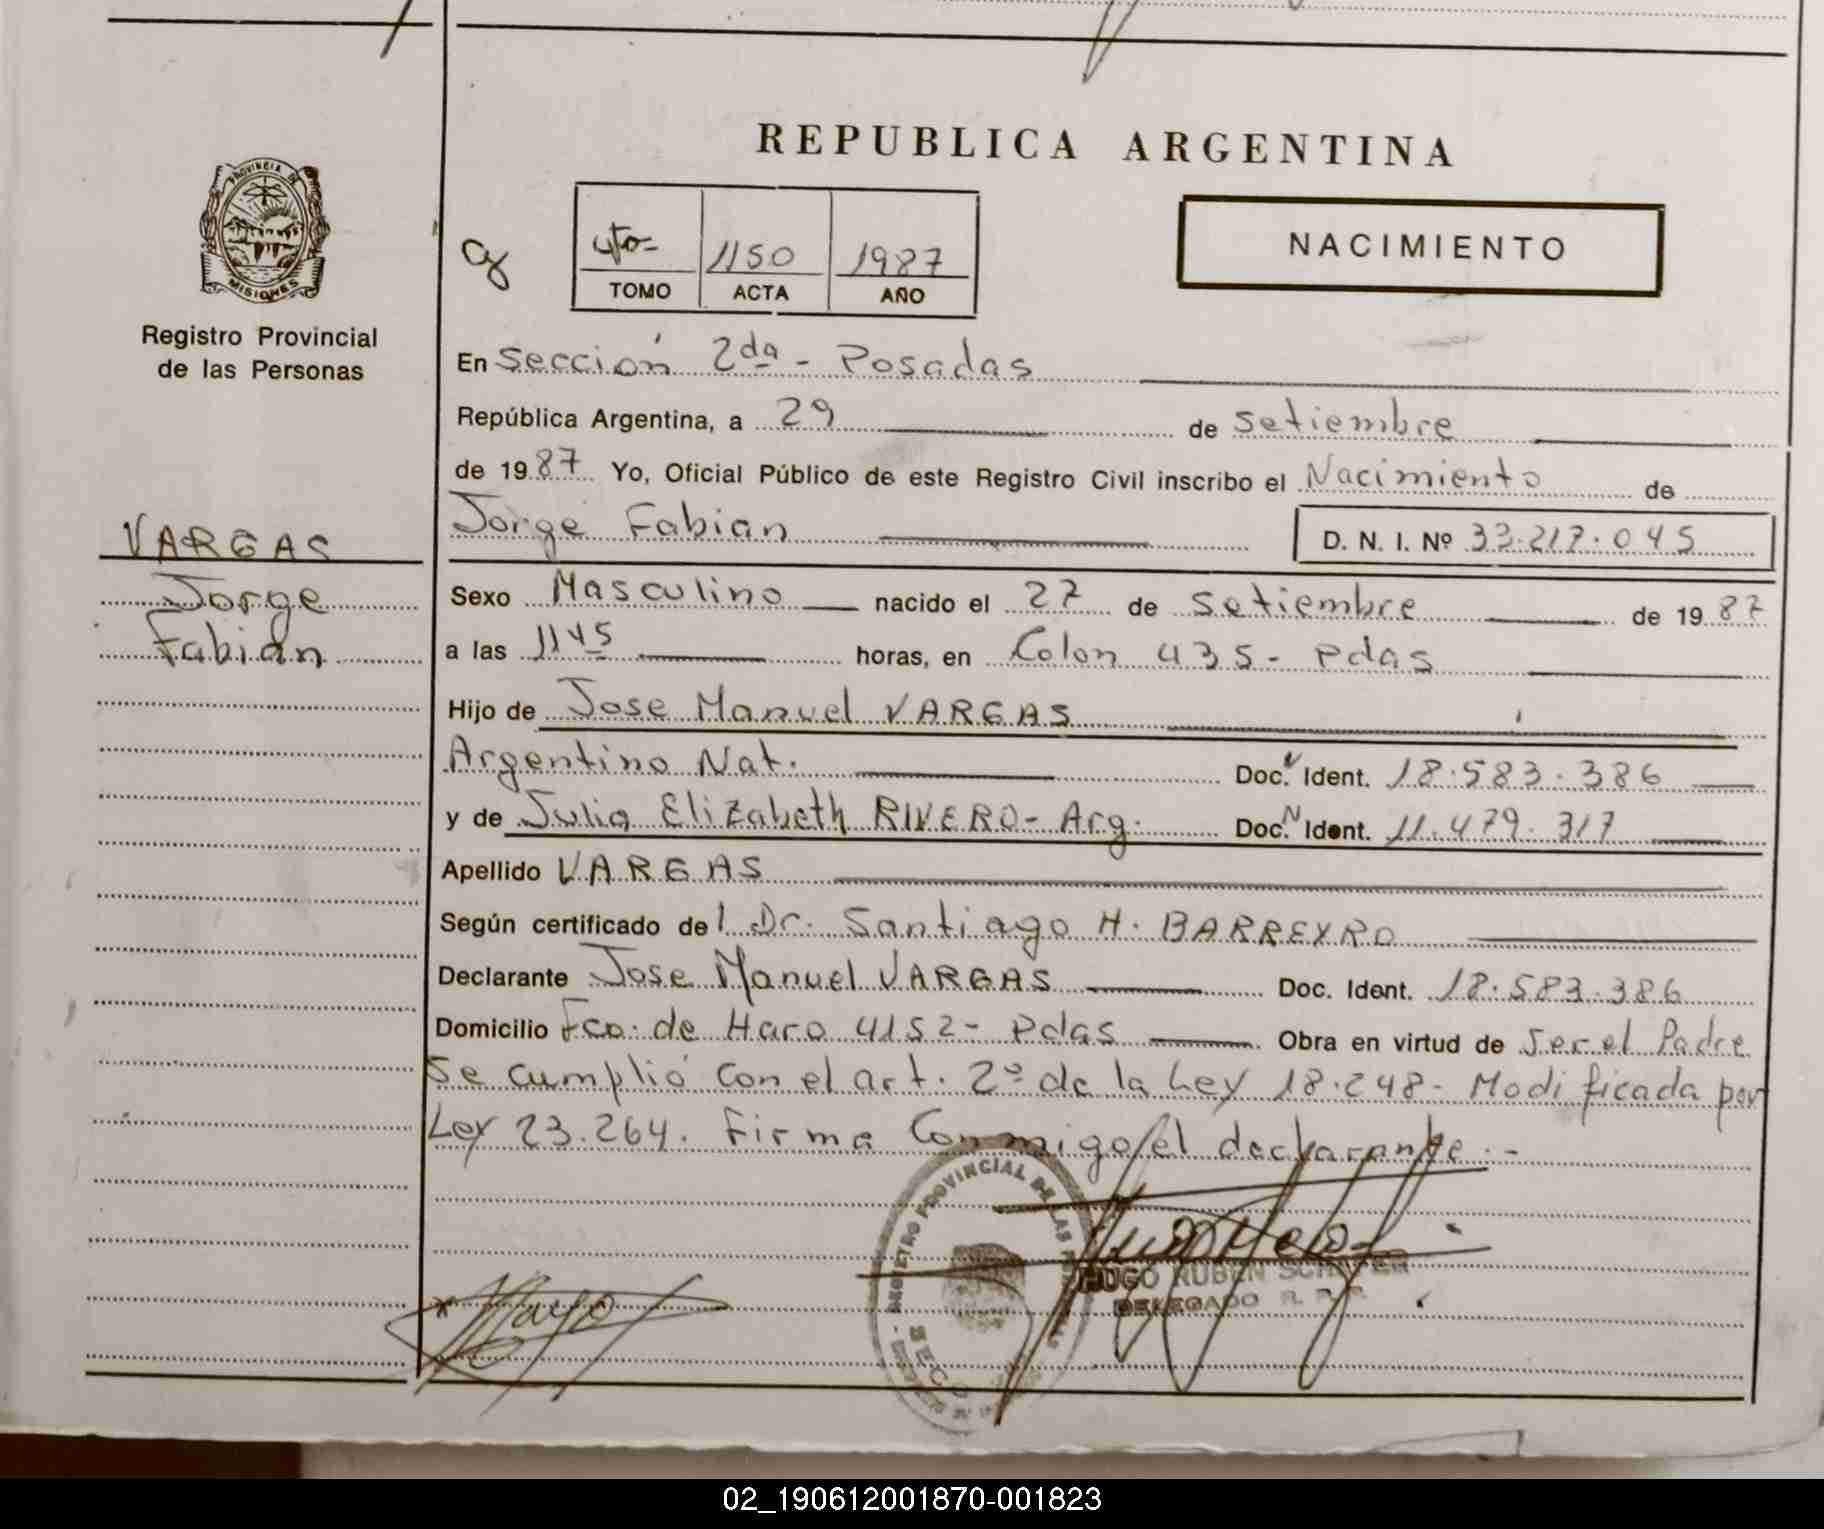 REPUBLICA ARGENTINA
PROVINCIA DE
MISIONES
Registro Provincial
de las Personas
4to- 1150 1987
TOMO ACTA AÑO
NACIMIENTO
En Sección 2da - Posadas
República Argentina, a 29 de Setiembre
de 1987 Yo, Oficial Público de este Registro Civil inscribo el Nacimiento de
Jorge Fabian D. N. I. Nº 33.217.045
VARGAS
Jorge
Fabian
Sexo Masculino nacido el 27 de Setiembre de 1987
a las 1145 horas, en Colon 435 - Pdas
Hijo de Jose Manuel VARGAS
Argentino Nat. Doc. Ident. 18.583.386
y de Julia Elizabeth RIVERO - Arg. Doc. N Ident. 11.479.317
Apellido VARGAS
Según certificado del Dr. Santiago H. BARREYRO
Declarante Jose Manuel VARGAS Doc. Ident. 18.583.386
Domicilio Fco. de Haro 4152 - Pdas Obra en virtud de Ser el Padre
Se cumplió con el art. 2º de la Ley 18.248 - Modificada por
Ley 23.264. Firma Conmigo el declarante.-
REGISTRO PROVINCIAL DE LAS
HUGO RUBEN
DELEGADO R. P. P.
02_190612001870-001823